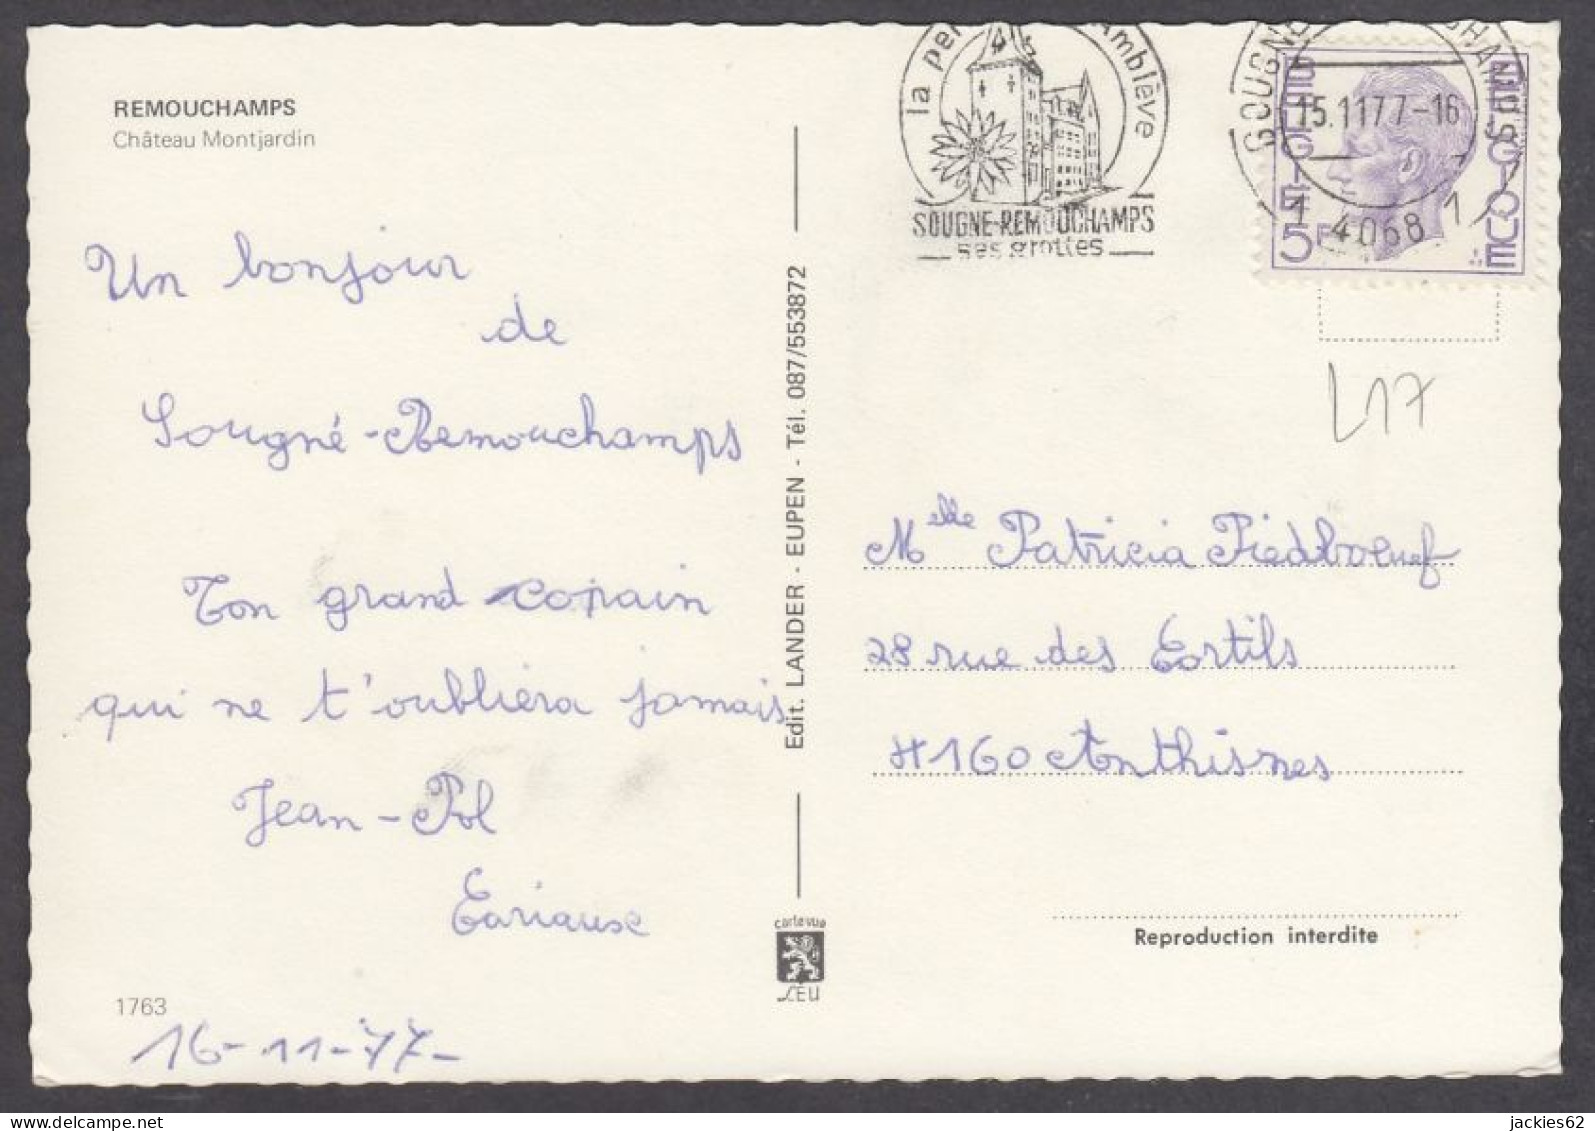 REMOUCHAMPS
Château Montjardin
Un bonjour
de
Sougné-Remouchamps
Ton grand copain
qui ne t'oubliera jamais
Jean-Pol
1763
16-11-77-
Edit. LANDER - EUPEN - Tél. 087/553872
cartevue
LEU
la Amblève
SOUGNE-REMOUCHAMPS
ses grottes
15.1177-16
1 4068 1
BELGIE
BELGIQUE
5F
L17
Melle Patricia Piedboeuf
28 rue des Cortils
4160 Anthisnes
Reproduction interdite
jackies62